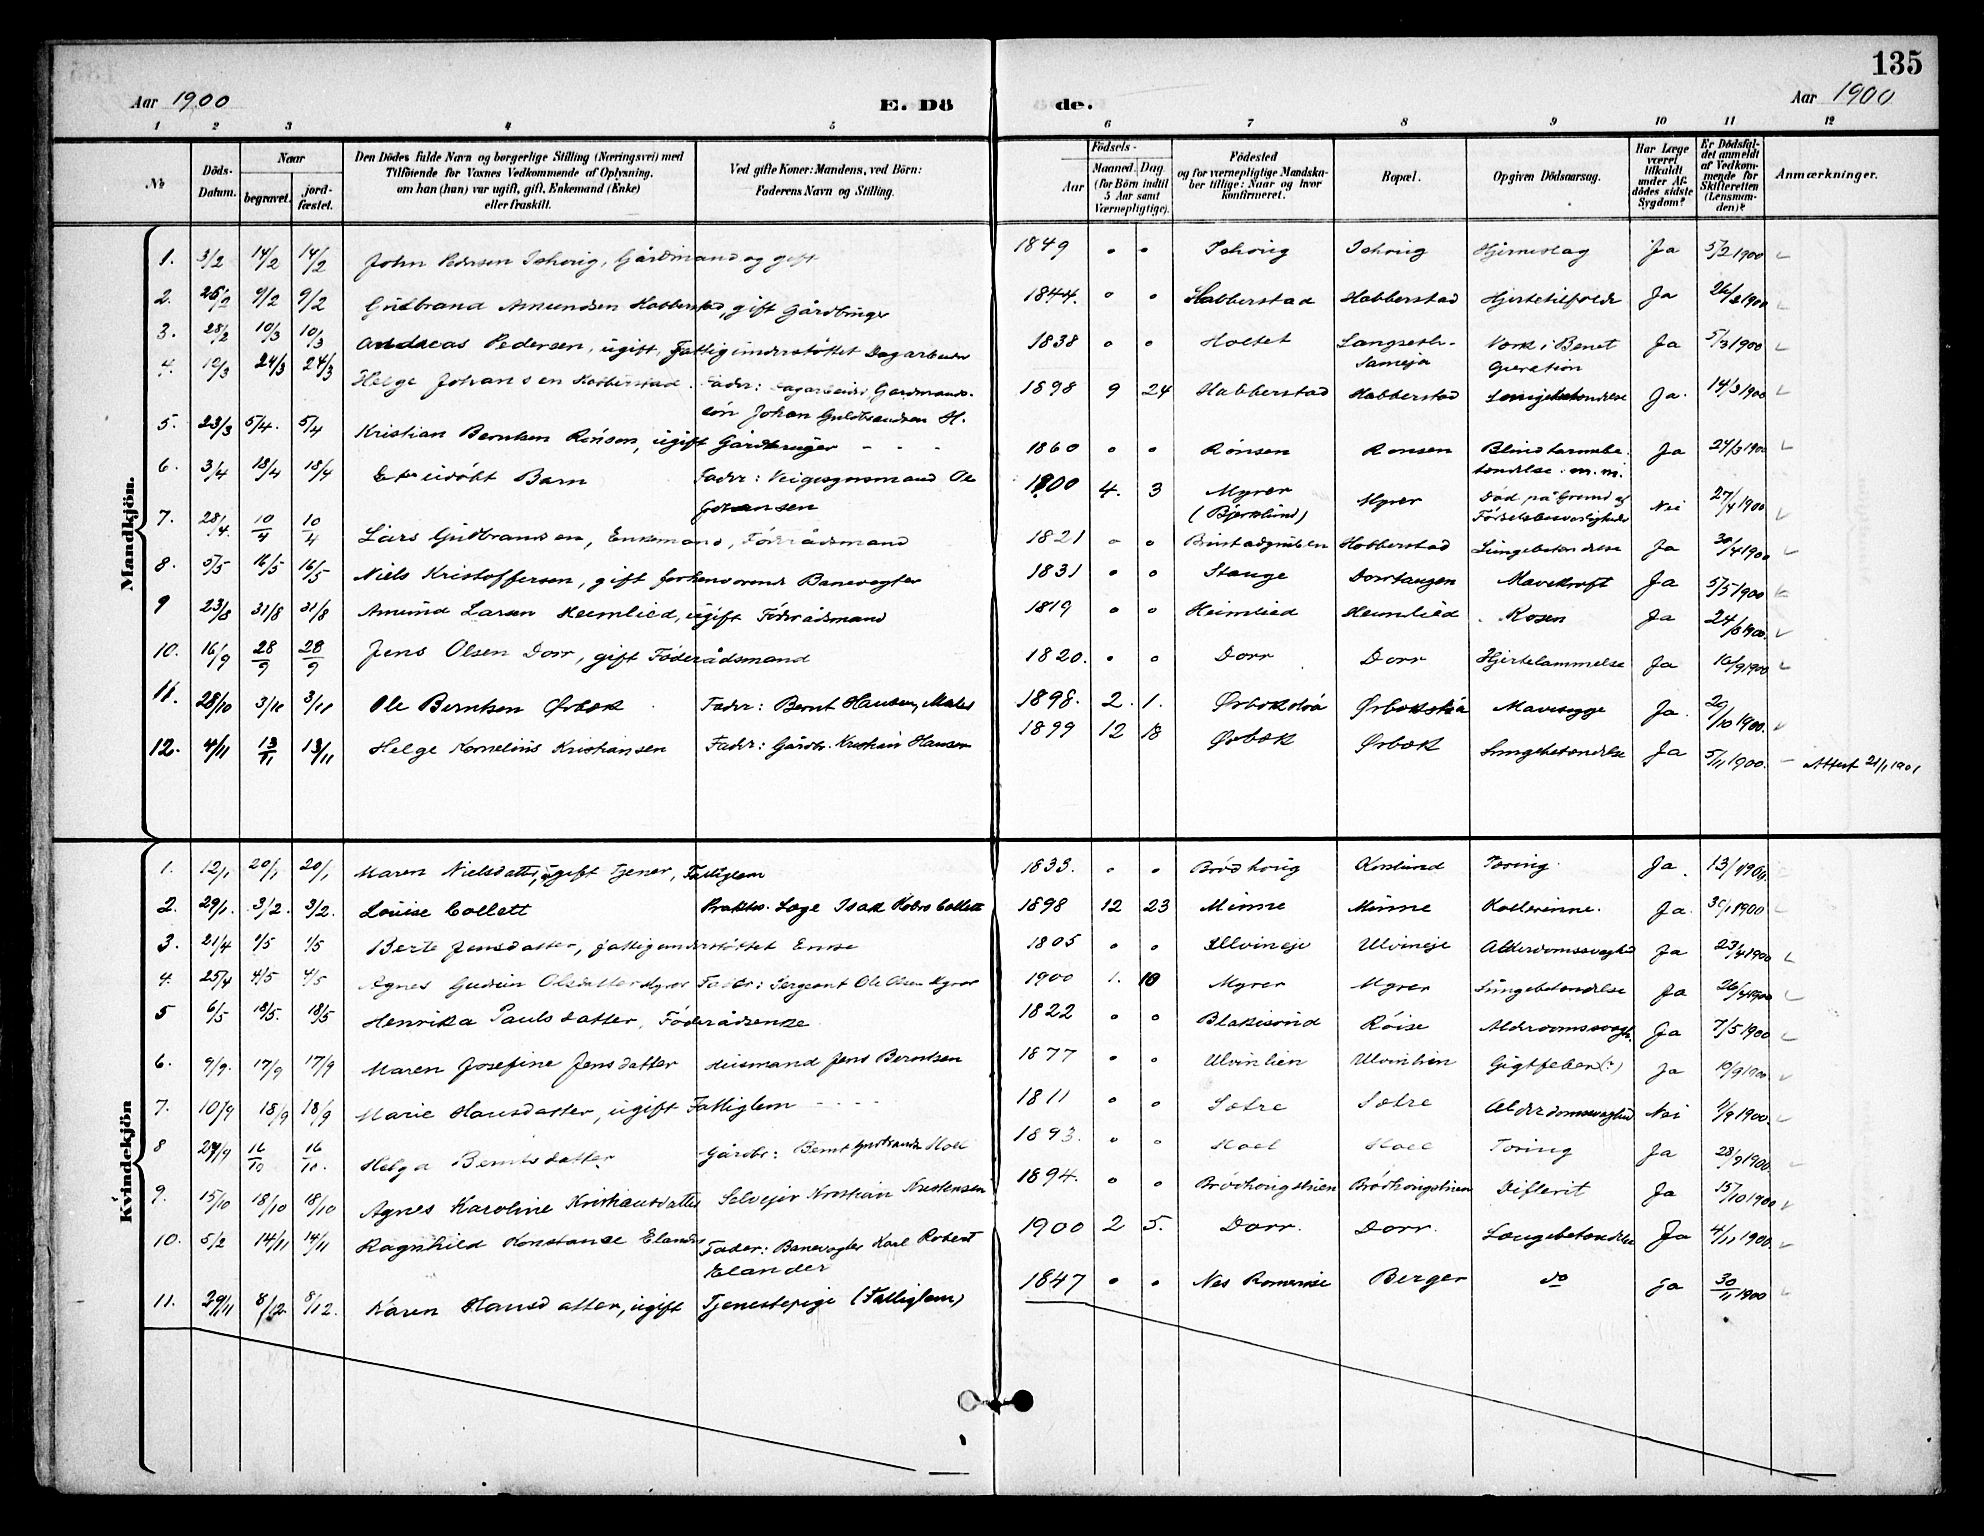 135
Aar 1900 E. Dö de. Aar 1900
1 2 3 4 5 6 7 8 9 10 11 12
No Döds-Datum. Naar begravet. jord-fæstet. Den Dödes fulde Navn og borgerlige Stilling (Næringsvei) med Tilföiende for Voxnes Vedkommende af Oplysning, om han (hun) var ugift, gift, Enkemand (Enke) eller fraskilt. Ved gifte Koner: Mandens, ved Börn: Faderens Navn og Stilling. Födsels- Aar Maaned. Dag. (for Börn indtil 5 Aar samt Værnepligtige). Födested og for værnepligtige Mandskaber tillige: Naar og hvor konfirmeret. Bopæl. Opgiven Dödsaarsag. Har Læge været tilkaldt under Afdödes sidste Sygdom? Er Dödsfaldet anmeldt af Vedkommende for Skifteretten (Lensmanden)? Anmærkninger.
Mandkjön.
1. 3/2 14/2 14/2 John Pedersen Ishoug, Gårdmand og gift 1849 " " Ishoug Ishoug Hjerneslag Ja 5/2 1900
2. 25/2 9/2 9/2 Gudbrand Amundsen Habberstad, gift Gårdbruger 1844. " " Habberstad Habberstad Hjertetilfælde Ja 26/2 1900
3. 28/2 10/3 10/3 Andreas Pedersen, ugift, Fattigunderstöttet Dagarbeider 1838 " " Holtet Langseth-Sameja Værk i Benet Operation Ja 5/3 1900
4. 10/3 24/3 24/3 Helge Johansen Habberstad. Fader: Dagarbeider, Gardmands-sön Johan Guldbrandsen H. 1898 9 24 Habberstad Habberstad Lungebetændelse Ja. 14/3 1900
5. 23/3 5/4. 5/4 Kristian Berntsen Rönsen, ugift Gårdbruger - - - 1860 " " Rönsen Rönsen Blindtarmbe-tændelse m.m. Ja 24/3 1900
6. 3/4 18/4 18/4 Et udöbt Barn Fader: Veivogtermand Ole Johansen 1900 4. 3 Myrer (Bjerklund) Myrer Död på Grund af Födselsbesværligheder Nei 27/4 1900
7. 28/4. 10/4 10/4 Lars Gudbrandsen, Enkemand, Föderådsmand 1821 " " Habberstad Lungebetændelse Ja 30/4 1900
8. 5/5 16/5 16/5 Niels Kristoffersen, gift forhenværende Banevogter 1831 " " Stange Dorrtangen Mavekræft Ja 5/5 1900
9 23/8 31/8 31/8 Amund Larsen Heimlied, ugift Föderådsmand 1819 " " Heimlied Heimlied Rosen Ja 24/8 1900.
10. 16/9 28/9 28/9 Jens Olsen Dorr, gift Föderådsmand 1820. " " Dorr Dorr Hjertelammelse Ja 16/9 1900
11. 28/10 3/11 3/11 Ole Berntsen Ørbæk Fader: Bernt Hansen, Maler 1898. 2. 1. Ørbækstöa Ørbækstöa Mavesyge Ja. 29/10 1900.
12. 4/11 13/11 13/11 Helge Kornelius Kristiansen Fader: Gårdbr. Kristian Hansen 1899 12 18 Ørbæk Ørbæk Lungebetændelse Ja 5/11 1900. Attest 21/1 1901
Kvindekjön
1. 12/1 20/1 20/1 Maren Nielsdatter, ugift tjener, Fattiglem 1833. " " Brödhoug Koslund Tæring. Ja. 13/1 1900
2. 29/1. 3/2. 3/2. Louise Collett Praktis. Læge Isak Kobro Collett 1898 12 23 Minne Minne Kollerinne. Ja. 30/1 1900
3. 21/4 1/5 1/5 Berte Jensdatter, fattigunderstöttet Enke 1805 " " Ulvineje Ulvineje Alderdomssvaghed Ja 23/4 1900
4. 25/4 4/5 4/5 Agnes Gudrun Olsdatter Myrer Fader: Sergeant Ole Olsen Myrer 1900 1. 18 Myrer Myrer Lungebetændelse Ja 26/4 1900
5 6/5 18/5. 18/5 Henrika Paulsdatter, Föderådsenke 1822 " " Blakisrud Röise Alderdomssvagh. Ja 7/5 1900
6. 9/9. 17/9 17/9 Maren Josefine Jensdatter Huismand Jens Berntsen 1877 " " Ulvinlien Ulvinlien Gigtfeber (?) Ja 10/9 1900.
7. 10/9 18/9 18/9 Marie Hansdatter, ugift Fattiglem - - - - 1811 " " Sætre Sætre Alderdomssvaghed Nei 11/9 1900.
8 27/9 16/10 16/10. Helga Berntsdatter Gårdbr: Bernt Gudbrands. Hoel 1893. " " Hoel Hoel Tæring Ja 28/9 1900.
9. 15/10 18/10 18/10 Agnes Karoline Kristiansdatter Selveier Kristian Kristensen 1894. " " Brödhougstuen Brödhougstuen Difterit Ja 15/10 1900
10. 5/2 14/11 14/11 Ragnhild Konstanse Elander Fader: Banevogter Karl Robert Elander 1900 2 5. Dorr. Dorr. Lungebetændelse Ja 4/11 1900.
11. 29/11 8/12 8/12. Karen Hansdatter, ugift Tjenestepige (Fattiglem) 1847 " " Nes Romerike Berger do ja 30/11 1900